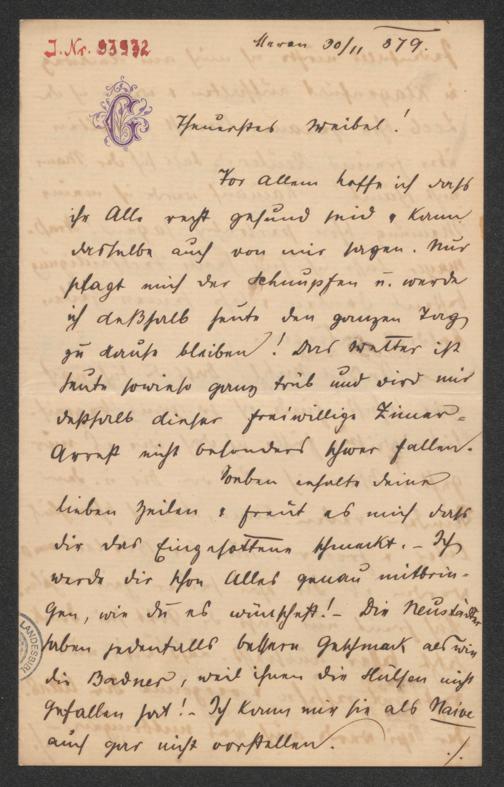 I. Nr. 93932
Meran 30/11 879.
G
Theuerstes Weibel!
Vor Allem hoffe ich daß
ihr Alle recht gesund seid & kann
dasselbe auch von mir sagen. Nur
plagt mich der Schnupfen u. werde
ich deßhalb heute den ganzen Tag
zu Hause bleiben! Das Wetter ist
heute sowieso ganz trüb und wird mir
deßhalb dieser freiwillige Zimer-
Arrest nicht besonders schwer fallen.
Soeben erhalte deine
lieben Zeilen & freut es mich daß
dir das Eingesottene schmeckt. – Ich
werde dir schon Alles genau mitbrin-
gen, wie du es wünschest! – Die Neustädter
haben jedenfalls bessern Geschmack als wie
die Badner, weil ihnen die Hülsen nicht
gefallen hat! – Ich kann mir sie als Naive
auch gar nicht vorstellen.
./.
LANDESBIBL